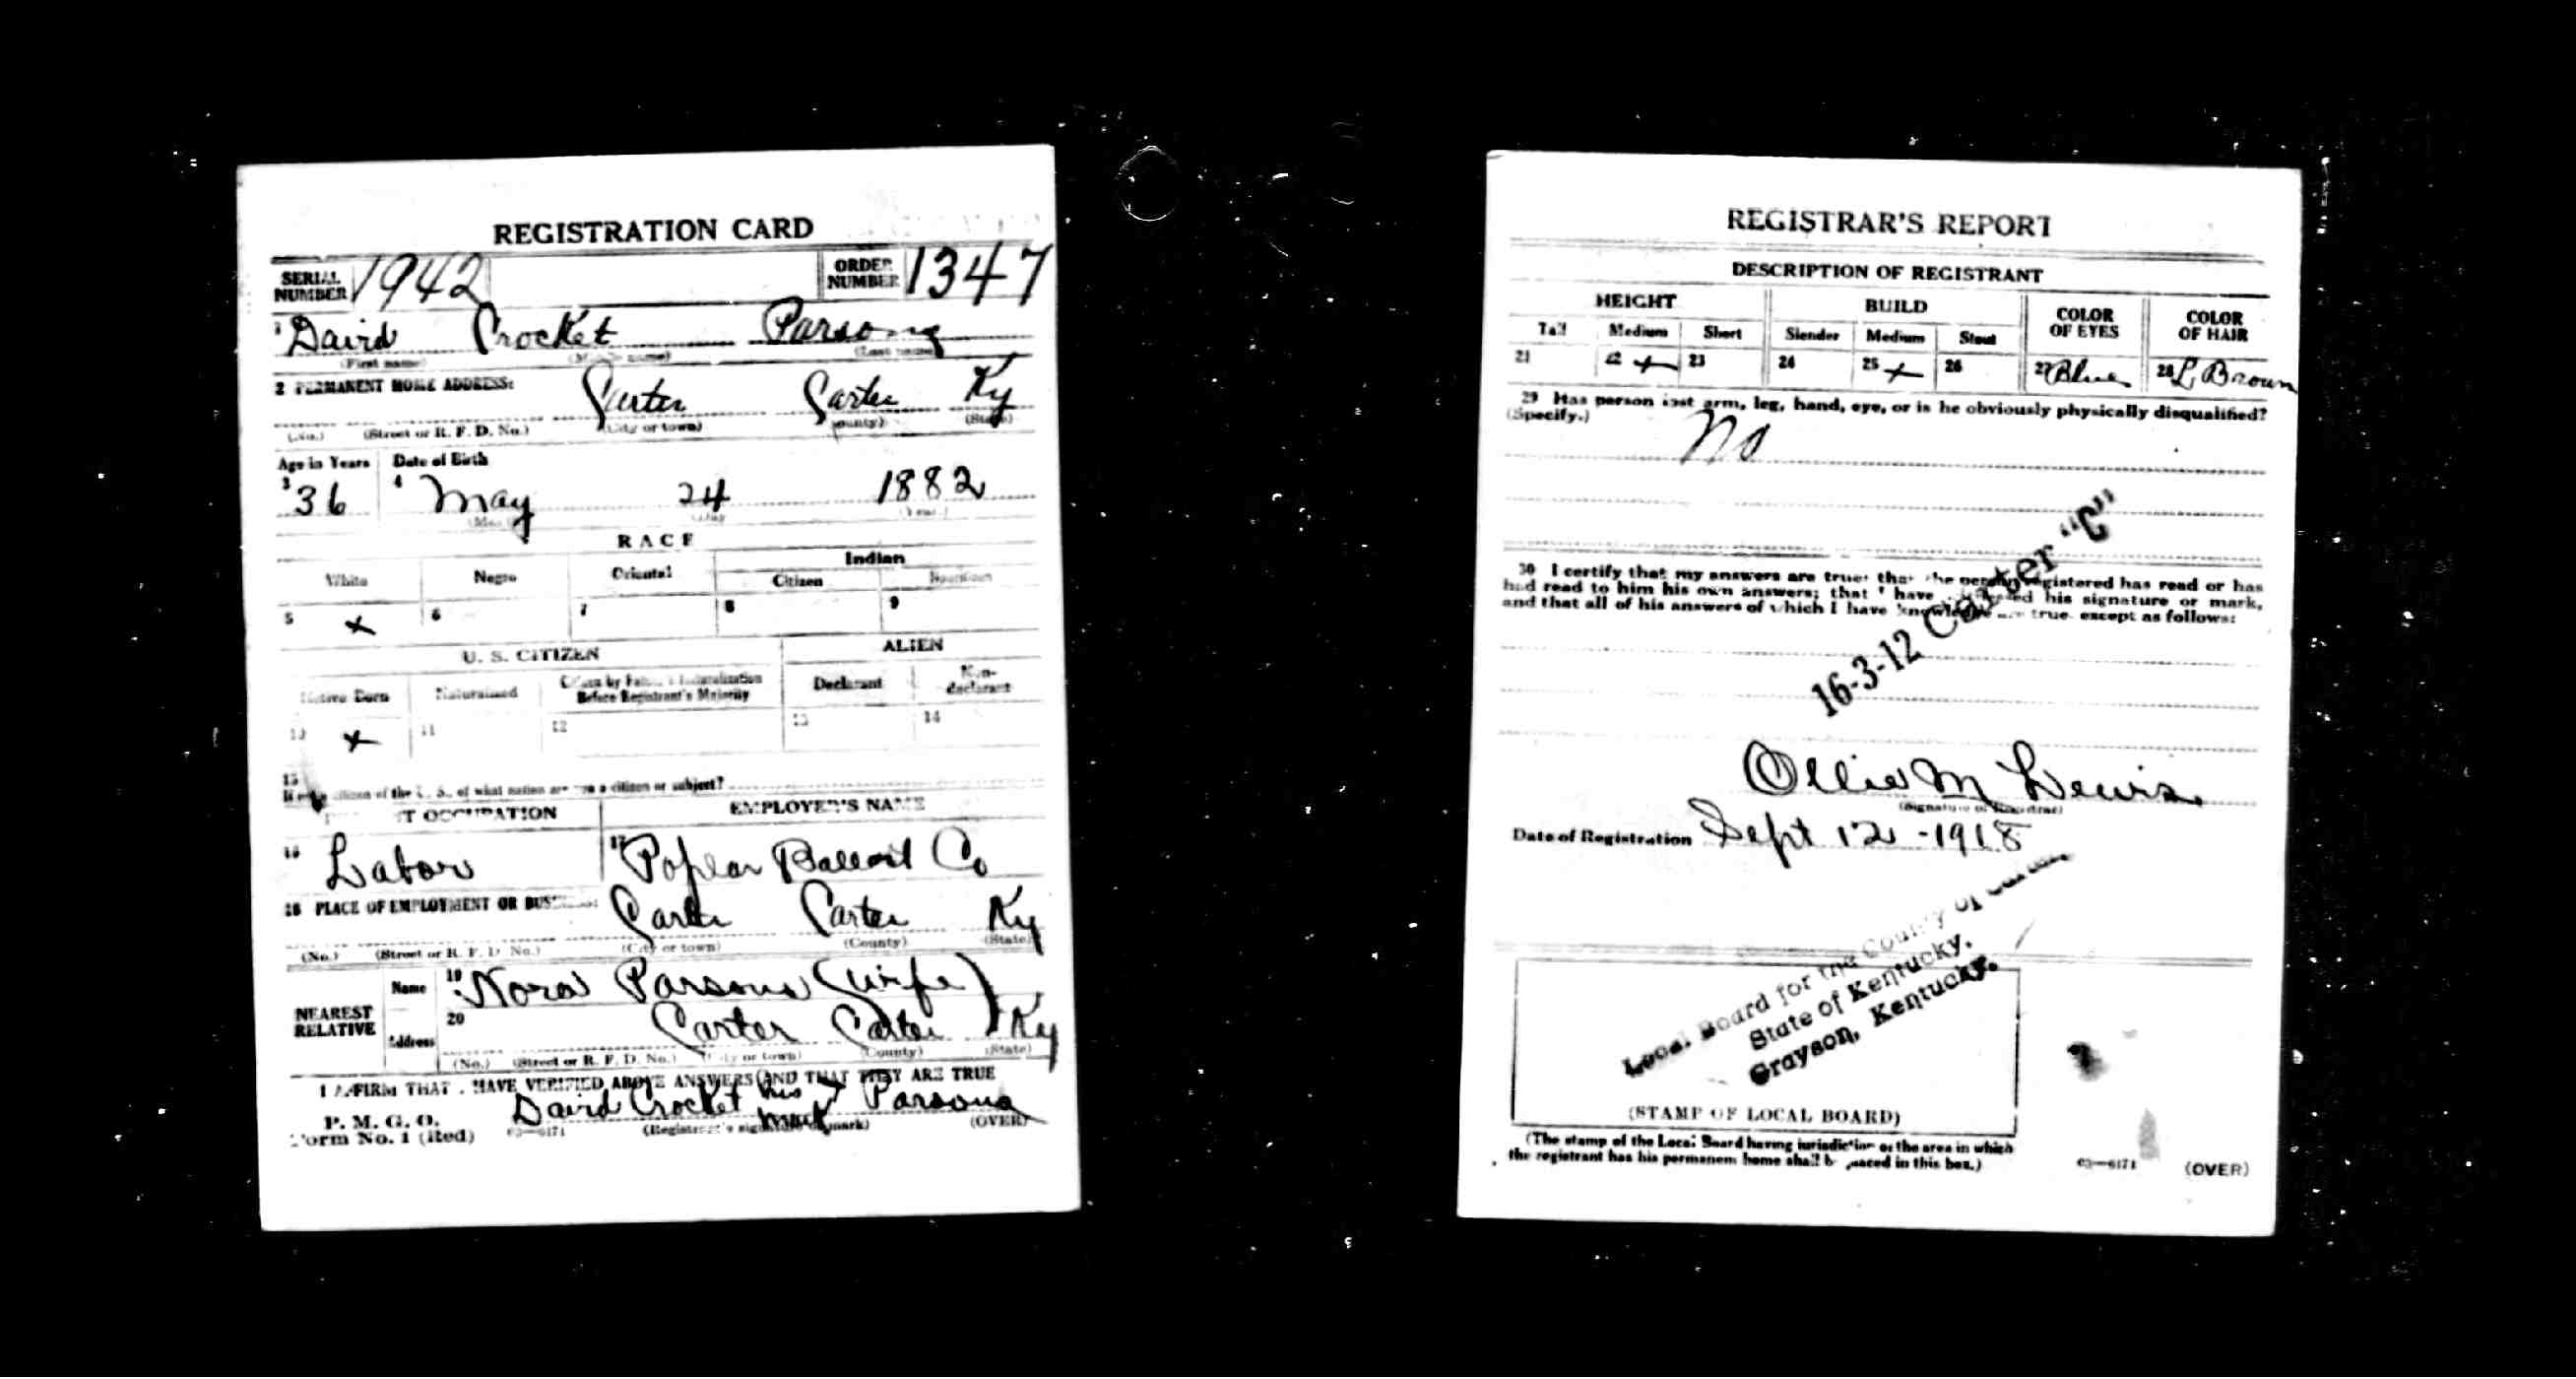 REGISTRATION CARD
SERIAL NUMBER 1942 ORDER NUMBER 1347
1 David Crocket Parsons
(First name) (Middle name) (Last name)
2 PERMANENT HOME ADDRESS:
Carter Carter Ky
(No.) (Street or R. F. D. No.) (City or town) (County) (State)
Age in Years Date of Birth
3 36 4 May 24 1882
(Month) (Day) (Year)
RACE
White Negro Oriental Indian
Citizen Noncitizen
5 x 6 7 8 9
U. S. CITIZEN ALIEN
Native Born Naturalized Citizen by Father's Naturalization Before Registrant's Majority Declarant Non-declarant
10 x 11 12 13 14
15
If not a citizen of the U. S., of what nation are you a citizen or subject?
PRESENT OCCUPATION EMPLOYER'S NAME
16 Labor 17 Poplar Ballast Co
18 PLACE OF EMPLOYMENT OR BUSINESS:
Carter Carter Ky
(No.) (Street or R. F. D. No.) (City or town) (County) (State)
NEAREST RELATIVE Name 19 Nora Parsons (Wife)
Address 20 Carter Carter Ky
(No.) (Street or R. F. D. No.) (City or town) (County) (State)
I AFFIRM THAT I HAVE VERIFIED ABOVE ANSWERS AND THAT THEY ARE TRUE
P. M. G. O.
Form No. 1 (Red) 03—6171 David Crocket his x mark Parsons
(Registrant's signature or mark) (OVER)
REGISTRAR'S REPORT
DESCRIPTION OF REGISTRANT
HEIGHT BUILD COLOR OF EYES COLOR OF HAIR
Tall Medium Short Slender Medium Stout
21 22 x 23 24 25 x 26 27 Blue 28 L Brown
29 Has person lost arm, leg, hand, eye, or is he obviously physically disqualified?
(Specify.)
No
30 I certify that my answers are true; that the person registered has read or has
had read to him his own answers; that I have witnessed his signature or mark,
and that all of his answers of which I have knowledge are true, except as follows:
16-3-12 Carter "C"
Ollie M Lewis
(Signature of Registrar)
Date of Registration Sept 12 - 1918
Local Board for the County of Carter
State of Kentucky,
Grayson, Kentucky.
(STAMP OF LOCAL BOARD)
(The stamp of the Local Board having jurisdiction of the area in which
the registrant has his permanent home shall be placed in this box.)
03—6171 (OVER)